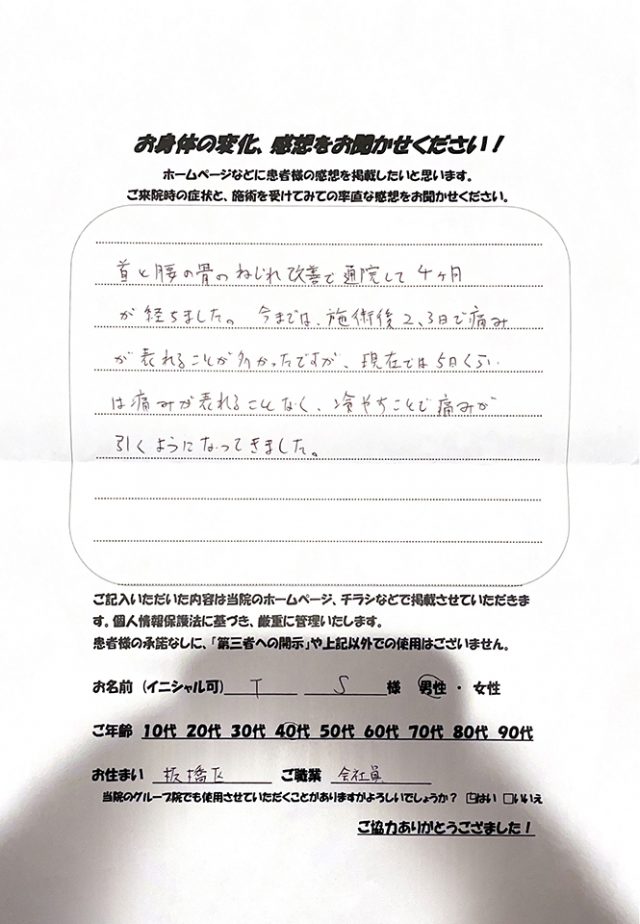 お身体の変化、感想をお聞かせください！
ホームページなどに患者様の感想を掲載したいと思います。
ご来院時の症状と、施術を受けてみての率直な感想をお聞かせください。
首と腰の骨のねじれ改善で通院して4ヶ月
が経ちました。今までは、施術後2、3日で痛み
が表れることが多かったですが、現在では5日くらい
は痛みが表れることなく、冷やすことで痛みが
引くようになってきました。
ご記入いただいた内容は当院のホームページ、チラシなどで掲載させていただきま
す。個人情報保護法に基づき、厳重に管理いたします。
患者様の承諾なしに、「第三者への開示」や上記以外での使用はございません。
お名前（イニシャル可） T S 様 男性 ・ 女性
ご年齢 10代 20代 30代 40代 50代 60代 70代 80代 90代
お住まい 板橋区 ご職業 会社員
当院のグループ院でも使用させていただくことがありますがよろしいでしょうか？ ☑はい □いいえ
ご協力ありがとうござました！